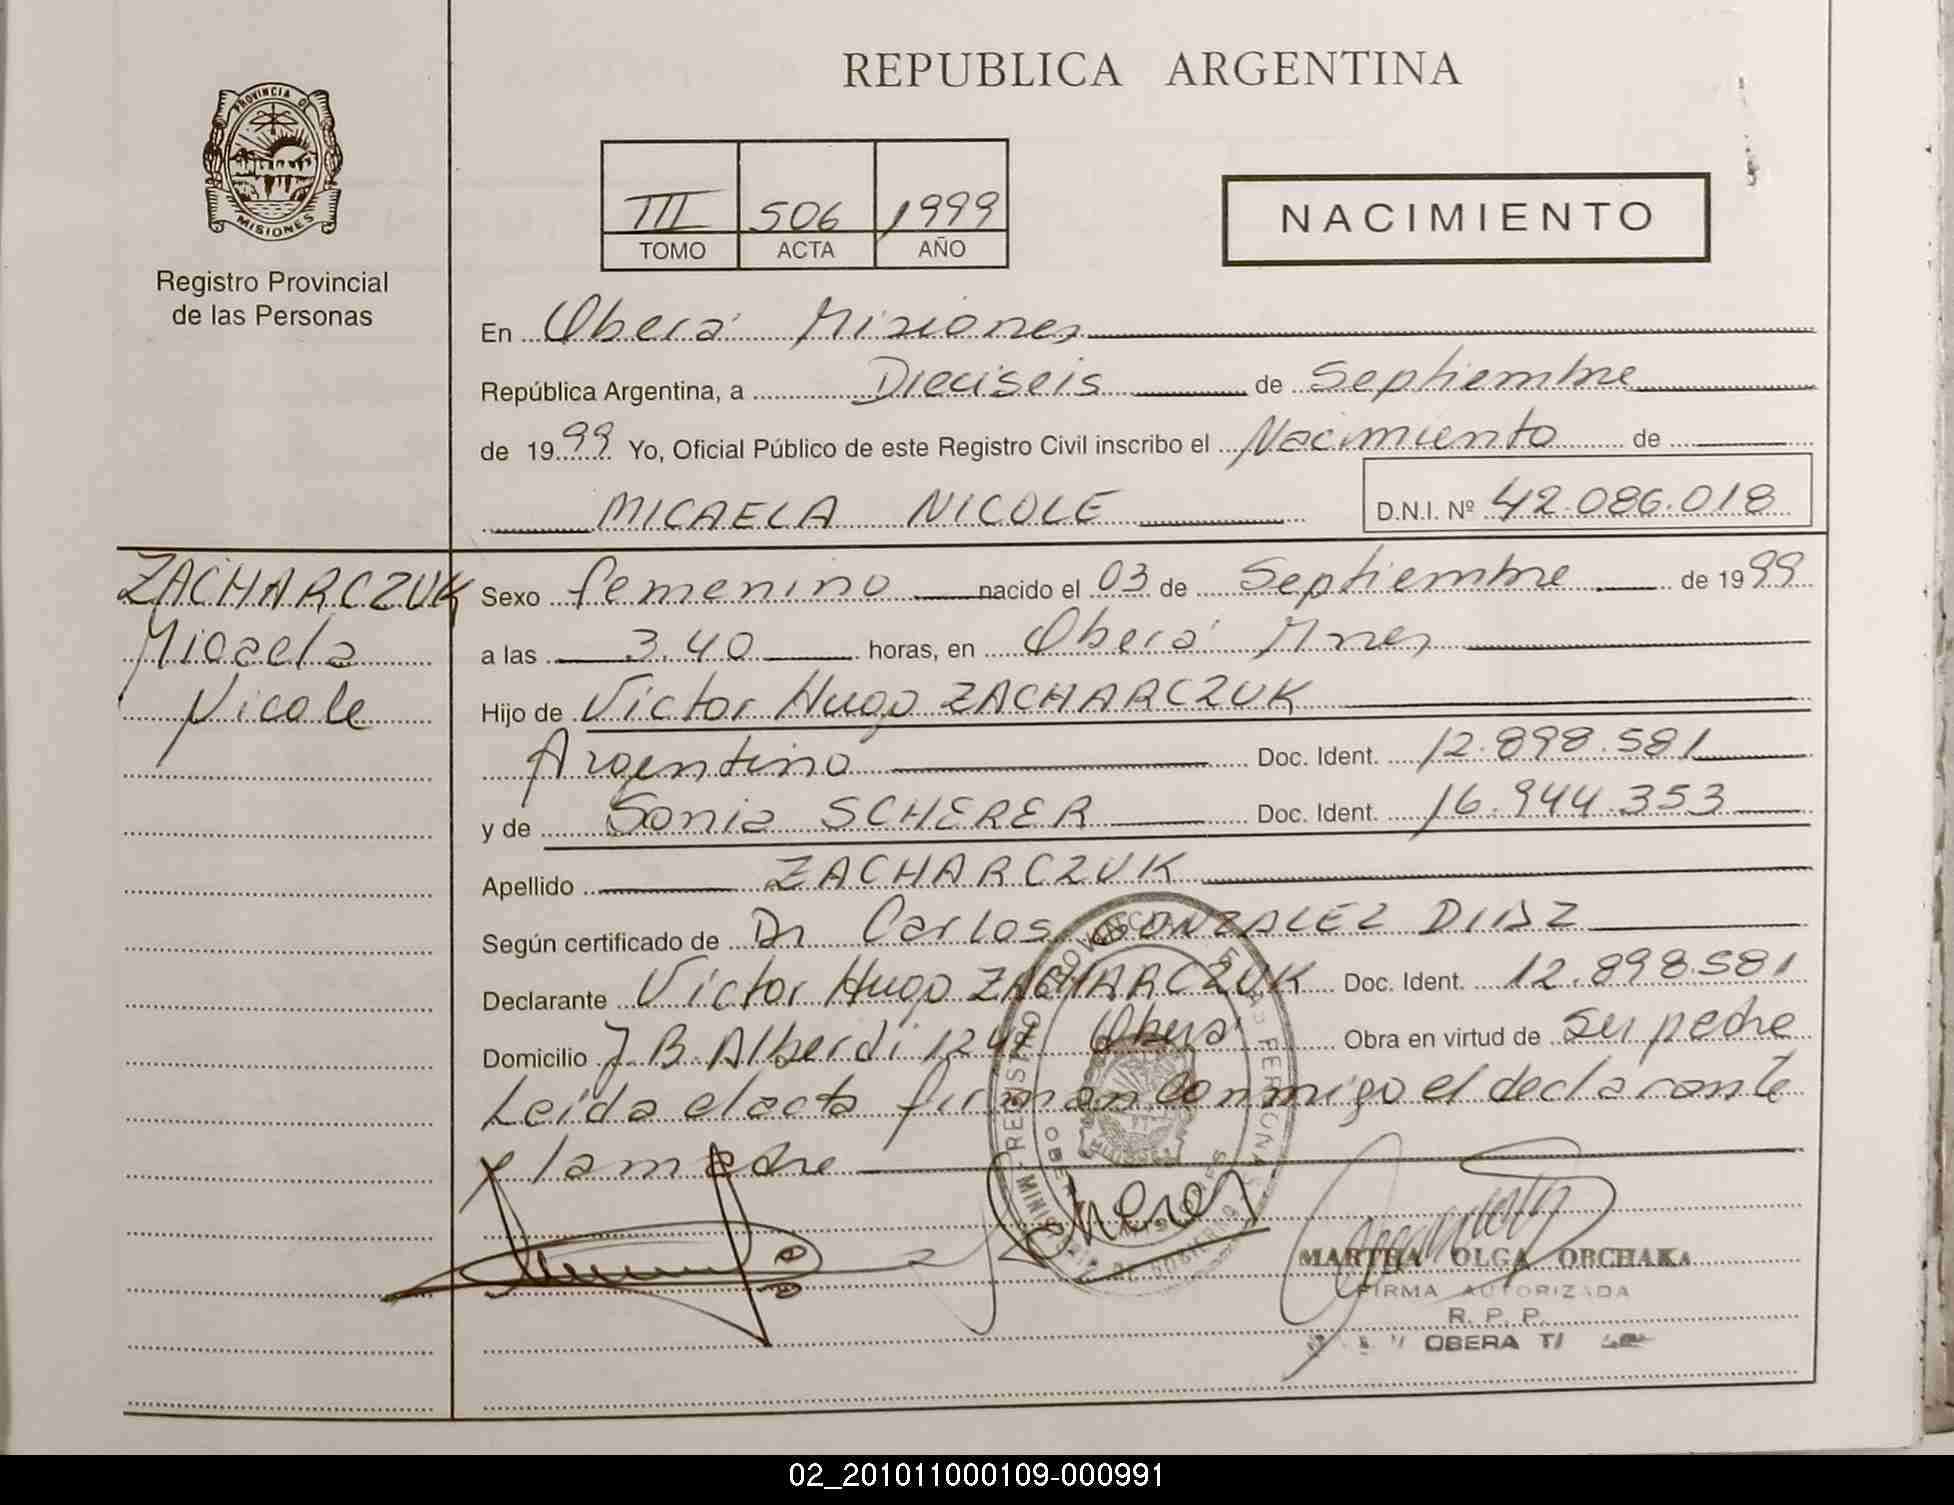 REPUBLICA ARGENTINA
PROVINCIA DE
MISIONES
Registro Provincial
de las Personas
III 506 1999
TOMO ACTA AÑO
NACIMIENTO
En Oberá Misiones
República Argentina, a Dieciseis de Septiembre
de 1999 Yo, Oficial Público de este Registro Civil inscribo el Nacimiento de
MICAELA NICOLE D.N.I. Nº 42.086.018
ZACHARCZUK
Micaela
Nicole
Sexo femenino nacido el 03 de Septiembre de 1999
a las 3.40 horas, en Oberá Mnes
Hijo de Victor Hugo ZACHARCZUK
Argentino Doc. Ident. 12.898.581
y de Sonia SCHERER Doc. Ident. 16.944.353
Apellido ZACHARCZUK
Según certificado de Dr Carlos GONZALEZ DIAZ
Declarante Victor Hugo ZACHARCZUK Doc. Ident. 12.898.581
Domicilio J.B. Alberdi 1247 Oberá Obra en virtud de ser padre
Leida el acta firman conmigo el declarante
y la madre
MARTHA OLGA OBCHAKA
FIRMA AUTORIZADA
R. P. P.
OBERA
02_201011000109-000991